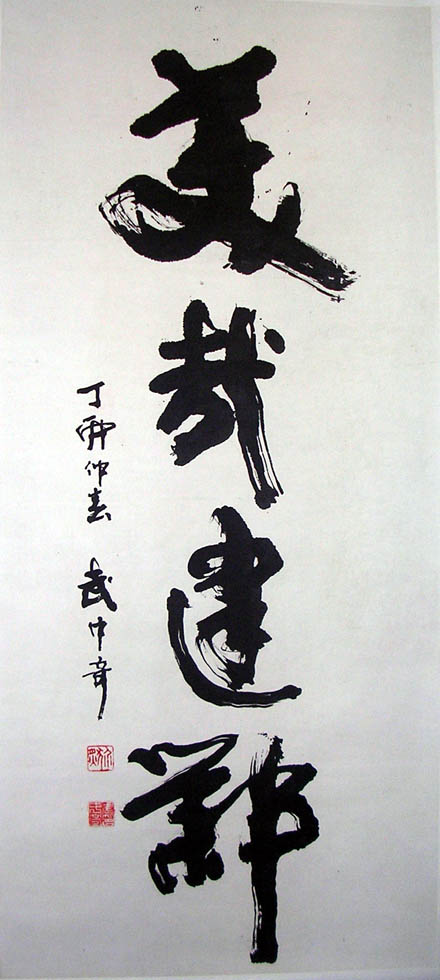 美哉建鄴
丁卯仲春 武中奇